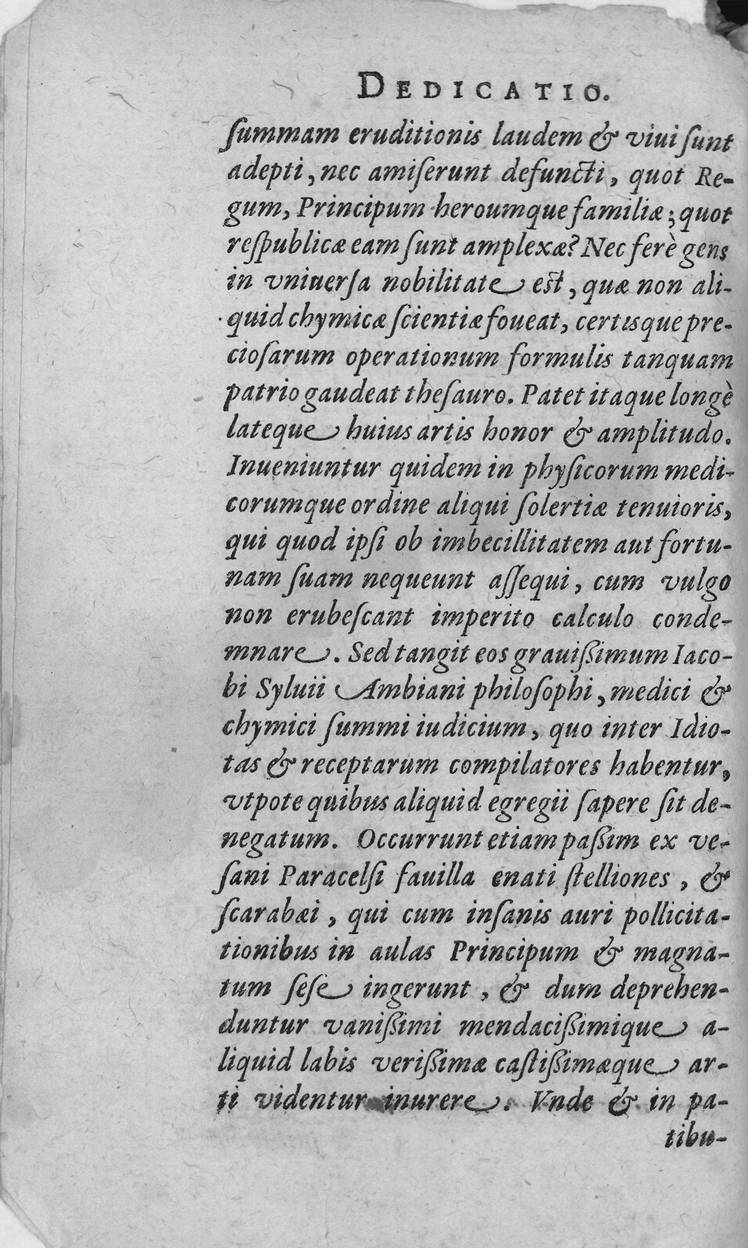 DEDICATIO.
ſummam eruditionis laudem & viui ſunt
adepti, nec amiſerunt defuncti, quot Re-
gum, Principum heroumque familiæ; quot
reſpublicæ eam ſunt amplexæ? Nec ferè gens
in vniuerſa nobilitate eſt, quæ non ali-
quid chymicæ ſcientiæ foueat, certisque pre-
cioſarum operationum formulis tanquam
patrio gaudeat theſauro. Patet itaque longè
lateque huius artis honor & amplitudo.
Inueniuntur quidem in phyſicorum medi-
corumque ordine aliqui ſolertiæ tenuioris,
qui quod ipſi ob imbecillitatem aut fortu-
nam ſuam nequeunt aſſequi, cum vulgo
non erubeſcant imperito calculo conde-
mnare. Sed tangit eos grauißimum Iaco-
bi Syluii Ambiani philoſophi, medici &
chymici ſummi iudicium, quo inter Idio-
tas & receptarum compilatores habentur,
vtpote quibus aliquid egregii ſapere ſit de-
negatum. Occurrunt etiam paßim ex ve-
ſani Paracelſi fauilla enati ſtelliones, &
ſcarabæi, qui cum inſanis auri pollicita-
tionibus in aulas Principum & magna-
tum ſeſe ingerunt, & dum deprehen-
duntur vanißimi mendacißimique a-
liquid labis verißimæ caſtißimæque ar-
ti videntur inurere. Vnde & in pa-
tibu-